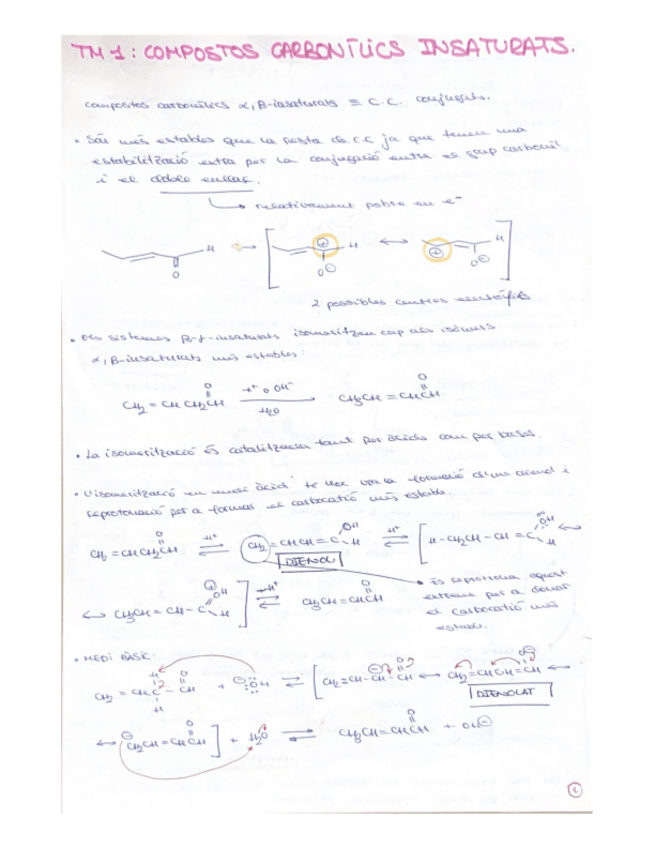 TM 1 : COMPOSTOS CARBONÍLICS INSATURATS.
compostos carbonílics α,β-insaturats ≡ C.C. conjugats.
• Són més estables que la resta de C.C ja que tenen una
estabilització extra per la conjugació entre el grup carbonil
i el doble enllaç.
→ relativament pobre en e⁻
H O ⟷ [ ⊕ H O⊖ ⟷ ⊕ H O⊖ ]
2 possibles centres electròfils
• Els sistemes β-γ-insaturats isomeritzen cap als isòmers
α,β-insaturats més estables:
CH₂=CHCH₂CH O H⁺ o OH⁻ H₂O → CH₃CH=CHCH O
• La isomerització és catalitzada tant per àcids com per bases.
• L'isomerització en medi àcid té lloc via la formació d'un dienol i
reprotonació per a formar el carbocatió més estable.
CH₂=CHCH₂CH O ⇌ H⁺ CH₂=CHCH=C OH H ⇌ H⁺ [ H-CH₂-CH-CH=C OH H ⟷
DIENOL
⟷ CH₃CH=CH-C ⊕OH H ] ⇌ -H⁺ CH₃CH=CHCH O
• Es reprotona aquest
extrem per a donar
el carbocatió més
estable.
• MEDI BÀSIC:
CH₂=CHC H H -CH O + ⊖OH ⇌ [ CH₂=CH-CH⊖-CH O ⟷ CH₂=CHCH=CH O⊖ ⟷
DIENOLAT
⟷ ⊖CH₂CH=CHCH O ] + H₂O ⇌ CH₃CH=CHCH O + OH⊖
1